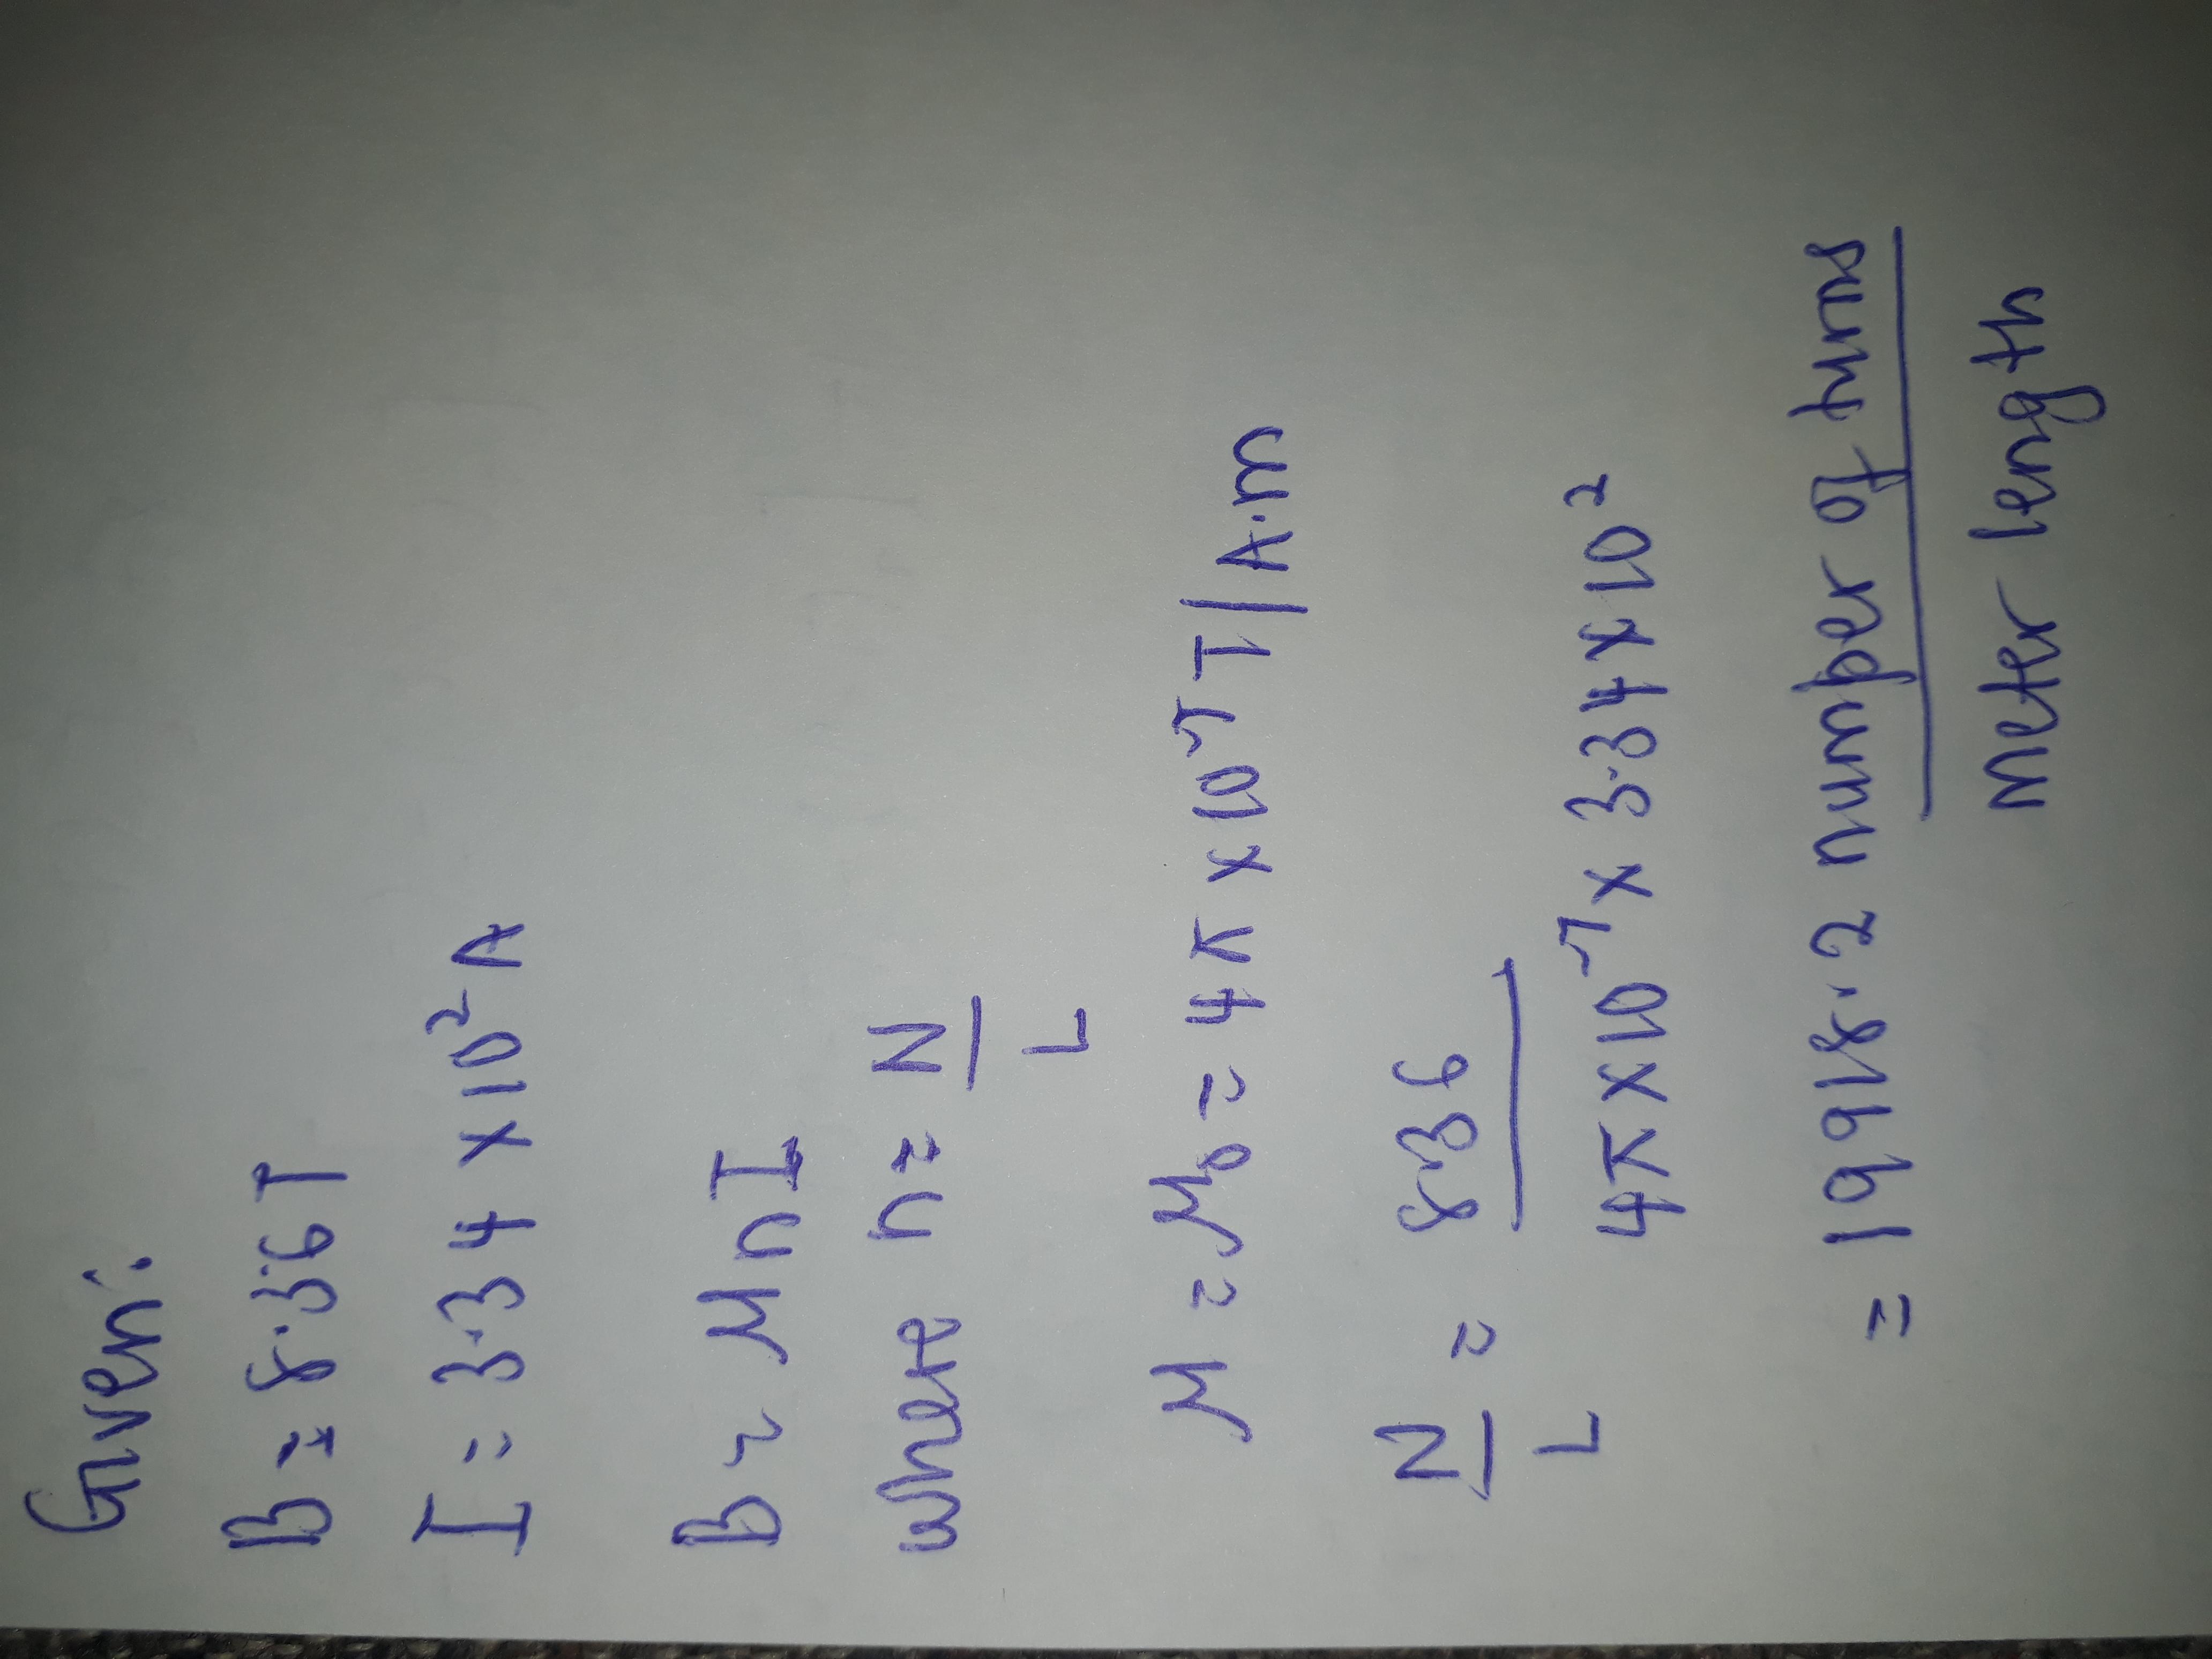 Given:
B = 8.36 T
I = 3.34 × 10² A
B = μ n I
where n = N
L
μ = μ₀ = 4π × 10⁻⁷ T | A.m
N = 8.36
L 4π × 10⁻⁷ × 3.34 × 10²
= 19918.2 number of turns
meter length